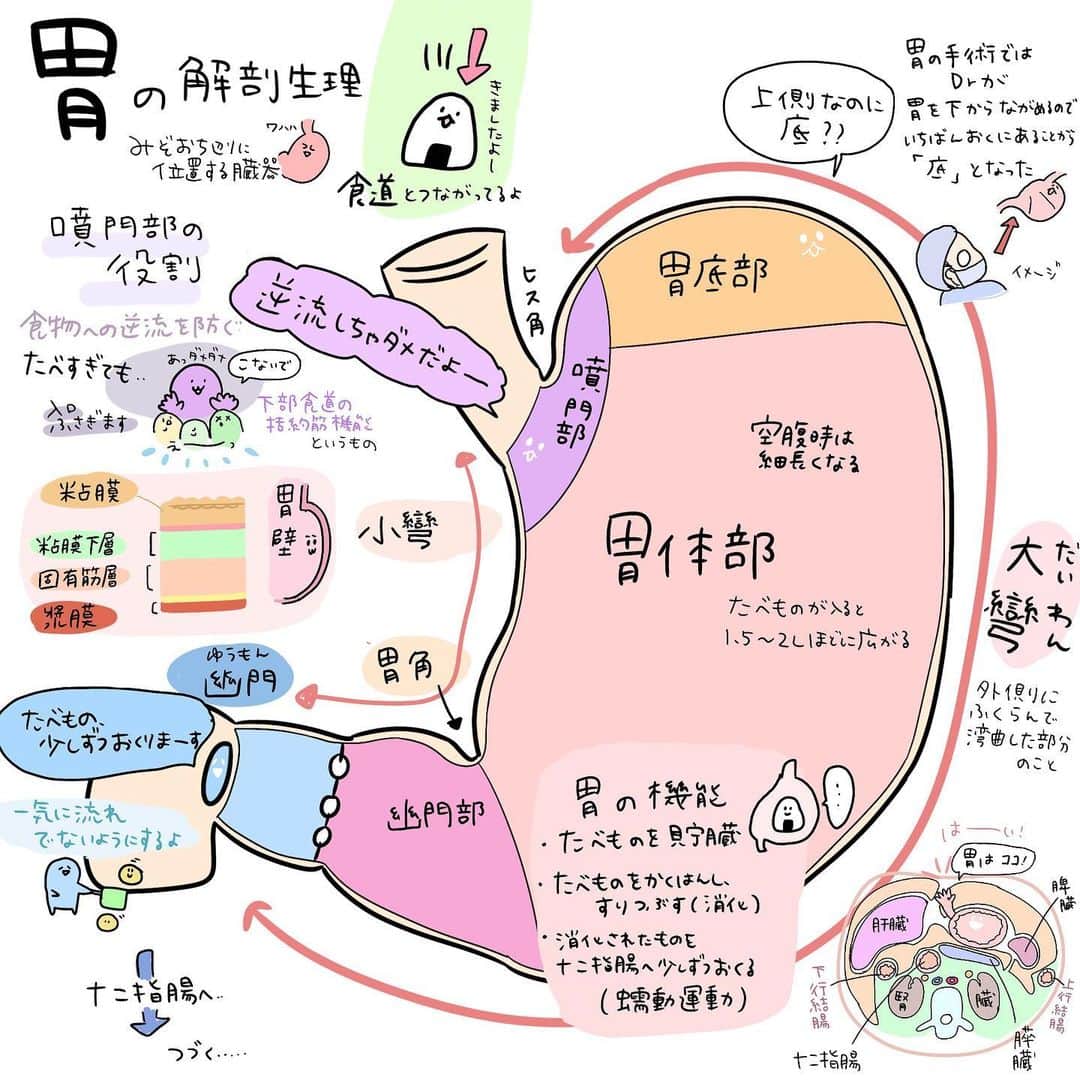 胃の解剖生理
みぞおち辺りに
位置する臓器
ワハハ
きましたよー
食道とつながってるよ
上側なのに
底??
胃の手術では
Drが
胃を下からながめるので
いちばんおくにあることから
「底」となった
イメージ
噴門部の
役割
食物への逆流を防ぐ
たべすぎても..
あっダメダメ
こないで
入口
ふさぎます
えっ
下部食道の
括約筋機能
というもの
逆流しちゃダメだよー
ヒス角
胃底部
噴門部
空腹時は
細長くなる
胃体部
たべものが入ると
1.5〜2Lほどに広がる
粘膜
粘膜下層
固有筋層
漿膜
胃壁
小彎
だいわん
大彎
外側に
ふくらんで
湾曲した部分
のこと
ゆうもん
幽門
胃角
たべもの、
少しずつおくりまーす
一気に流れ
でないようにするよ
幽門部
胃の機能
・たべものを貯蔵
・たべものをかくはんし、
すりつぶす(消化)
・消化されたものを
十二指腸へ少しずつおくる
(蠕動運動)
...
十二指腸へ..
つづく.....
はーーい!
胃はココ!
脾臓
肝臓
下行結腸
腎
臓
上行結腸
十二指腸
膵臓